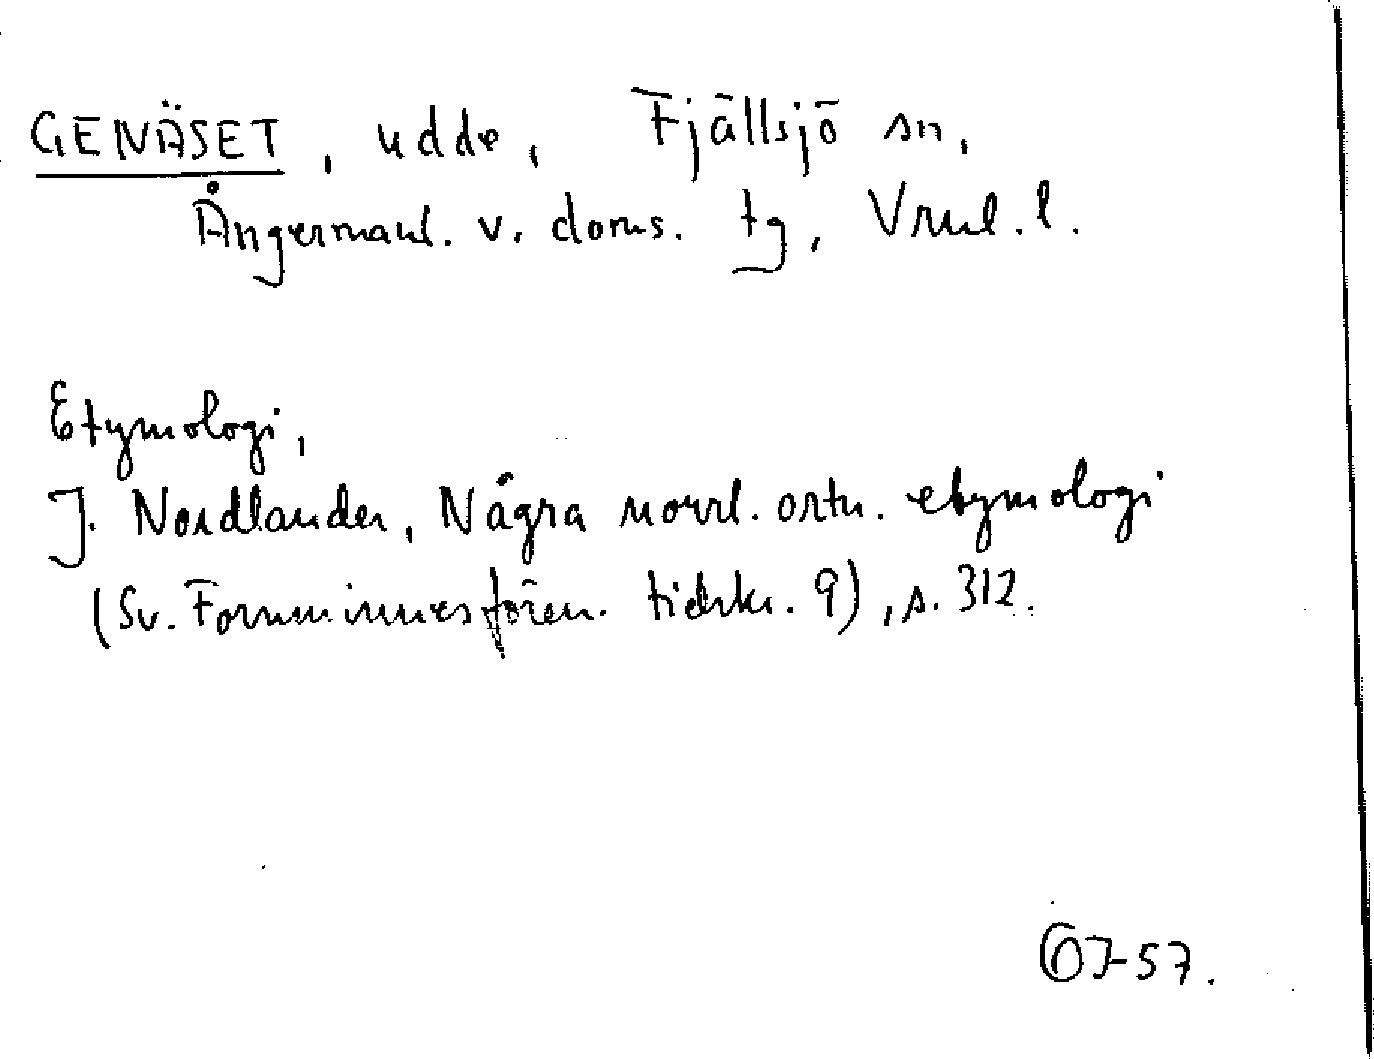 GENÄSET, udde, Fjällsjö sn,
Ångermanl. v. doms. tg, Vrnl. l.
Etymologi,
J. Nordlander, Några norrl. ortn. etymologi
(Sv. Fornminnesfören. tidskr. 9), s. 312.
57.